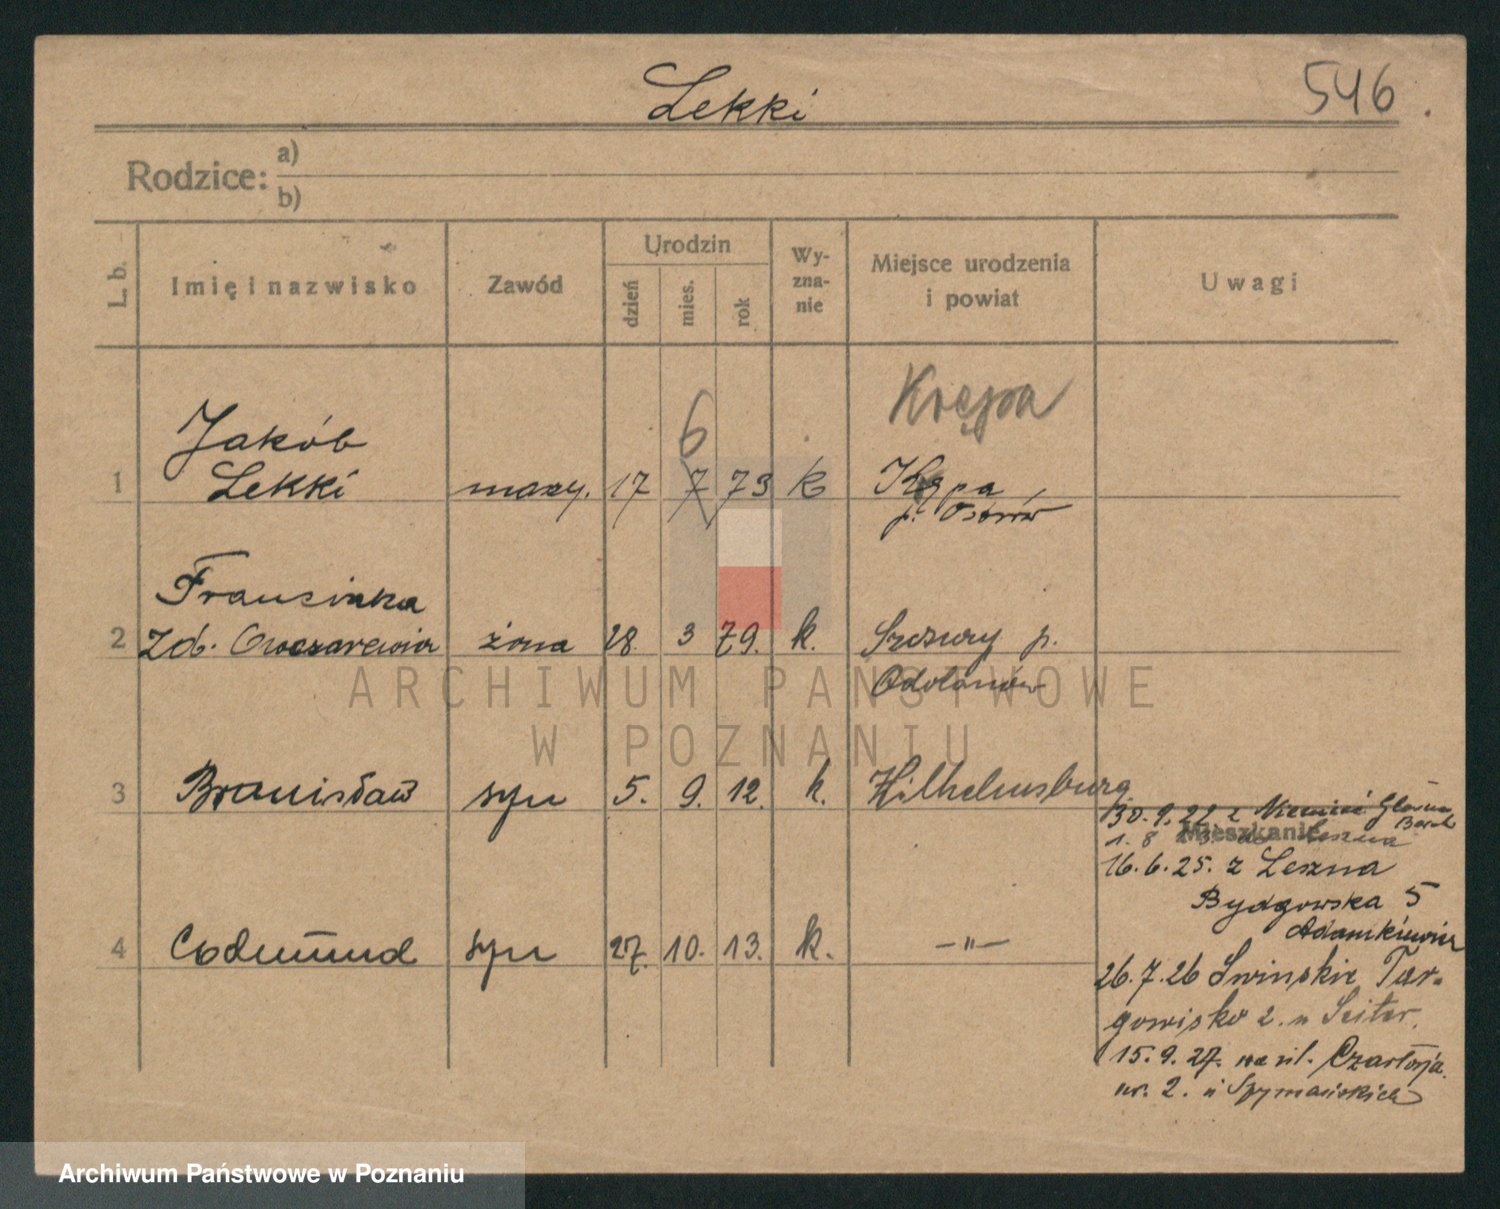 Lekki
546.
Rodzice: a)
b)
L. b.
Imię i nazwisko
Zawód
Urodzin
dzień
mies.
rok
Wy-
zna-
nie
Miejsce urodzenia
i powiat
Uwagi
Jakób
6
Krępa
1 Lekki 17 7 73 k Kępa
p.
Franciszka
2 Zd. żona 28. 3 79. k. p.
Odolanów
3 Bronisław syn 5. 9. 12. k. Wilhelmsburg
30.9.22 z
Mieszkanie
1. 8
16.6.25. z Leszna
Bydgowska 5
Adamkiewicz
4 Codmund syn 27. 10. 13. k. —"—
26.7.26 Swinskie Tar-
gowisko 2. u Seiter.
15.9.27. na ul. Czartorja.
nr. 2. u Szymańskich
ARCHIWUM PAŃSTWOWE
W POZNANIU
Archiwum Państwowe w Poznaniu